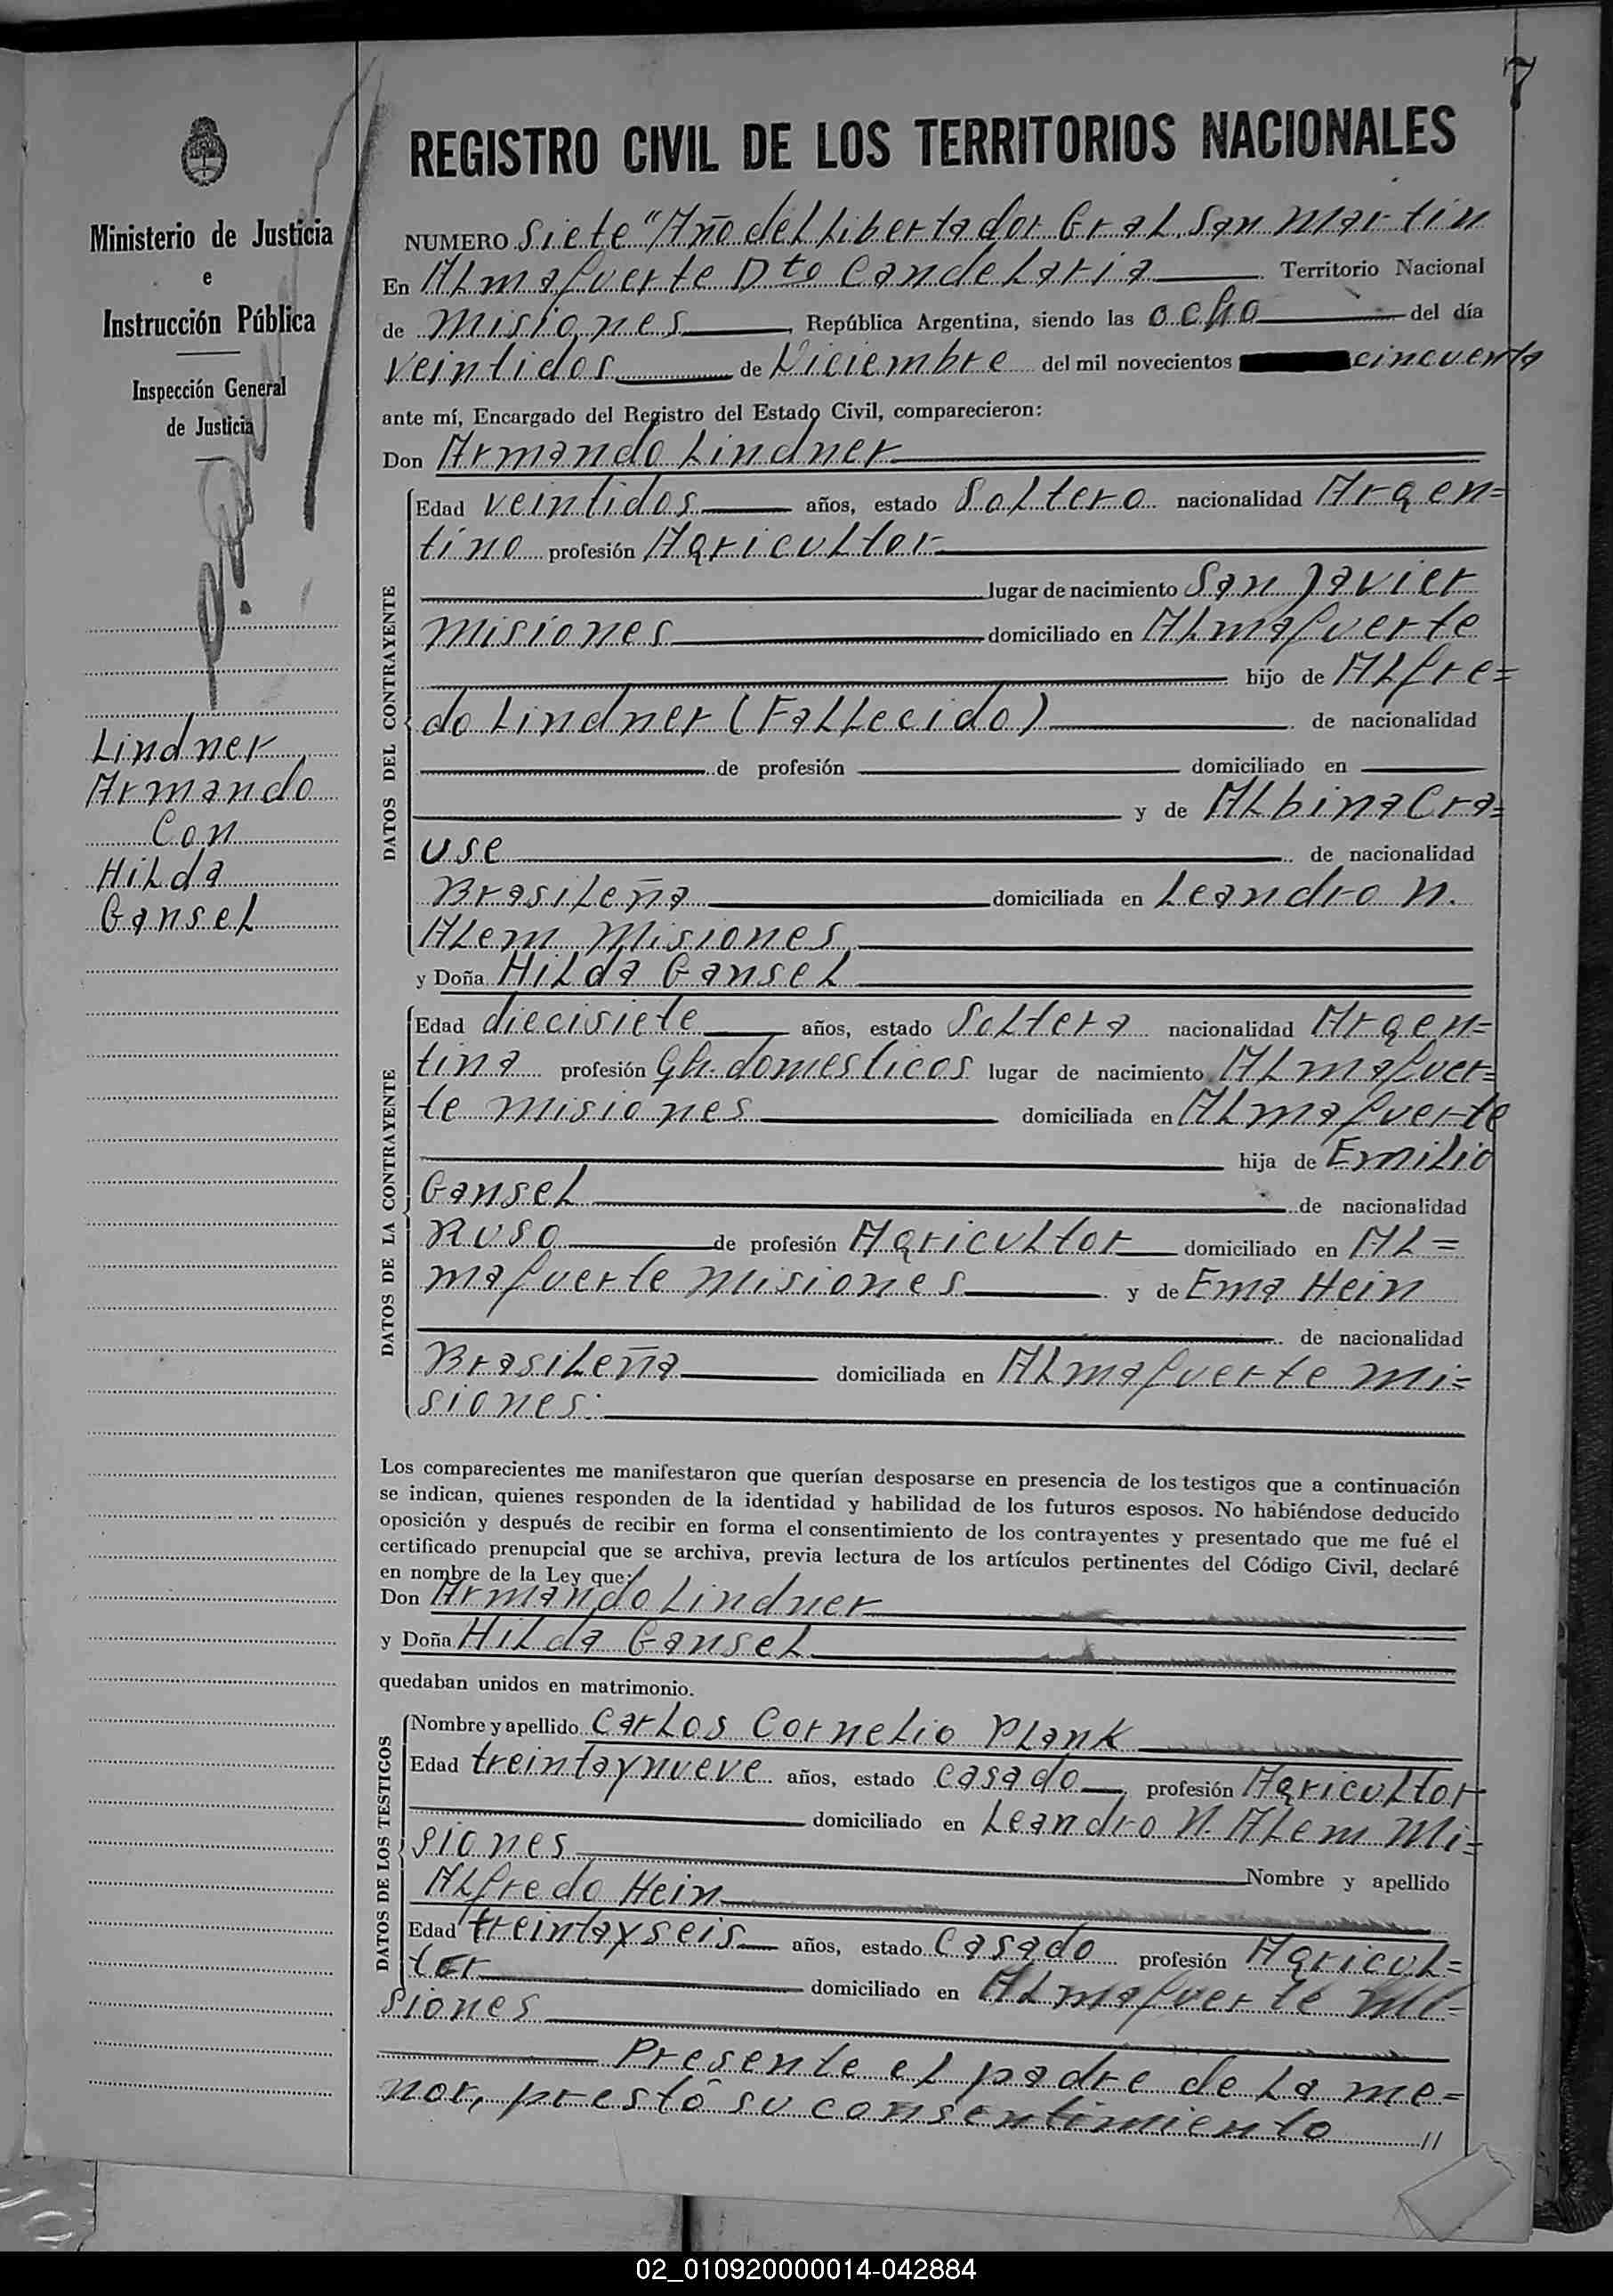 7
Ministerio de Justicia
e
Instrucción Pública
Inspección General
de Justicia
Lindner
Armando
Con
Hilda
Gansel
REGISTRO CIVIL DE LOS TERRITORIOS NACIONALES
NUMERO Siete "Año del Libertador Gral. San Martin
En Almafuerte Dto Candelaria Territorio Nacional
de Misiones, República Argentina, siendo las ocho del día
veintidos de Diciembre del mil novecientos cincuenta
ante mí, Encargado del Registro del Estado Civil, comparecieron:
Don Armando Lindner
DATOS DEL CONTRAYENTE
Edad veintidos años, estado Soltero nacionalidad Argen=
tino profesión Agricultor
lugar de nacimiento San Javier
Misiones domiciliado en Almafuerte
hijo de Alfre=
do Lindner (Fallecido) de nacionalidad
de profesión domiciliado en
y de Albina Cra=
use de nacionalidad
Brasileña domiciliada en Leandro N.
Alem Misiones
y Doña Hilda Gansel
DATOS DE LA CONTRAYENTE
Edad diecisiete años, estado Soltera nacionalidad Argen=
tina profesión Qh. domesticos lugar de nacimiento Almafuer=
te Misiones domiciliada en Almafuerte
hija de Emilio
Gansel de nacionalidad
Ruso de profesión Agricultor domiciliado en Al=
mafuerte Misiones y de Ema Hein
de nacionalidad
Brasileña domiciliada en Almafuerte Mi=
siones.
Los comparecientes me manifestaron que querían desposarse en presencia de los testigos que a continuación
se indican, quienes responden de la identidad y habilidad de los futuros esposos. No habiéndose deducido
oposición y después de recibir en forma el consentimiento de los contrayentes y presentado que me fué el
certificado prenupcial que se archiva, previa lectura de los artículos pertinentes del Código Civil, declaré
en nombre de la Ley que:
Don Armando Lindner
y Doña Hilda Gansel
quedaban unidos en matrimonio.
DATOS DE LOS TESTIGOS
Nombre y apellido Carlos Cornelio Plank
Edad treintaynueve años, estado casado, profesión Agricultor
domiciliado en Leandro N. Alem Mi=
siones
Nombre y apellido
Alfredo Hein
Edad treintayseis años, estado Casado profesión Agricul=
tor domiciliado en Almafuerte Mi=
siones
Presente el padre de la me=
nor, prestó su consentimiento //
02_010920000014-042884